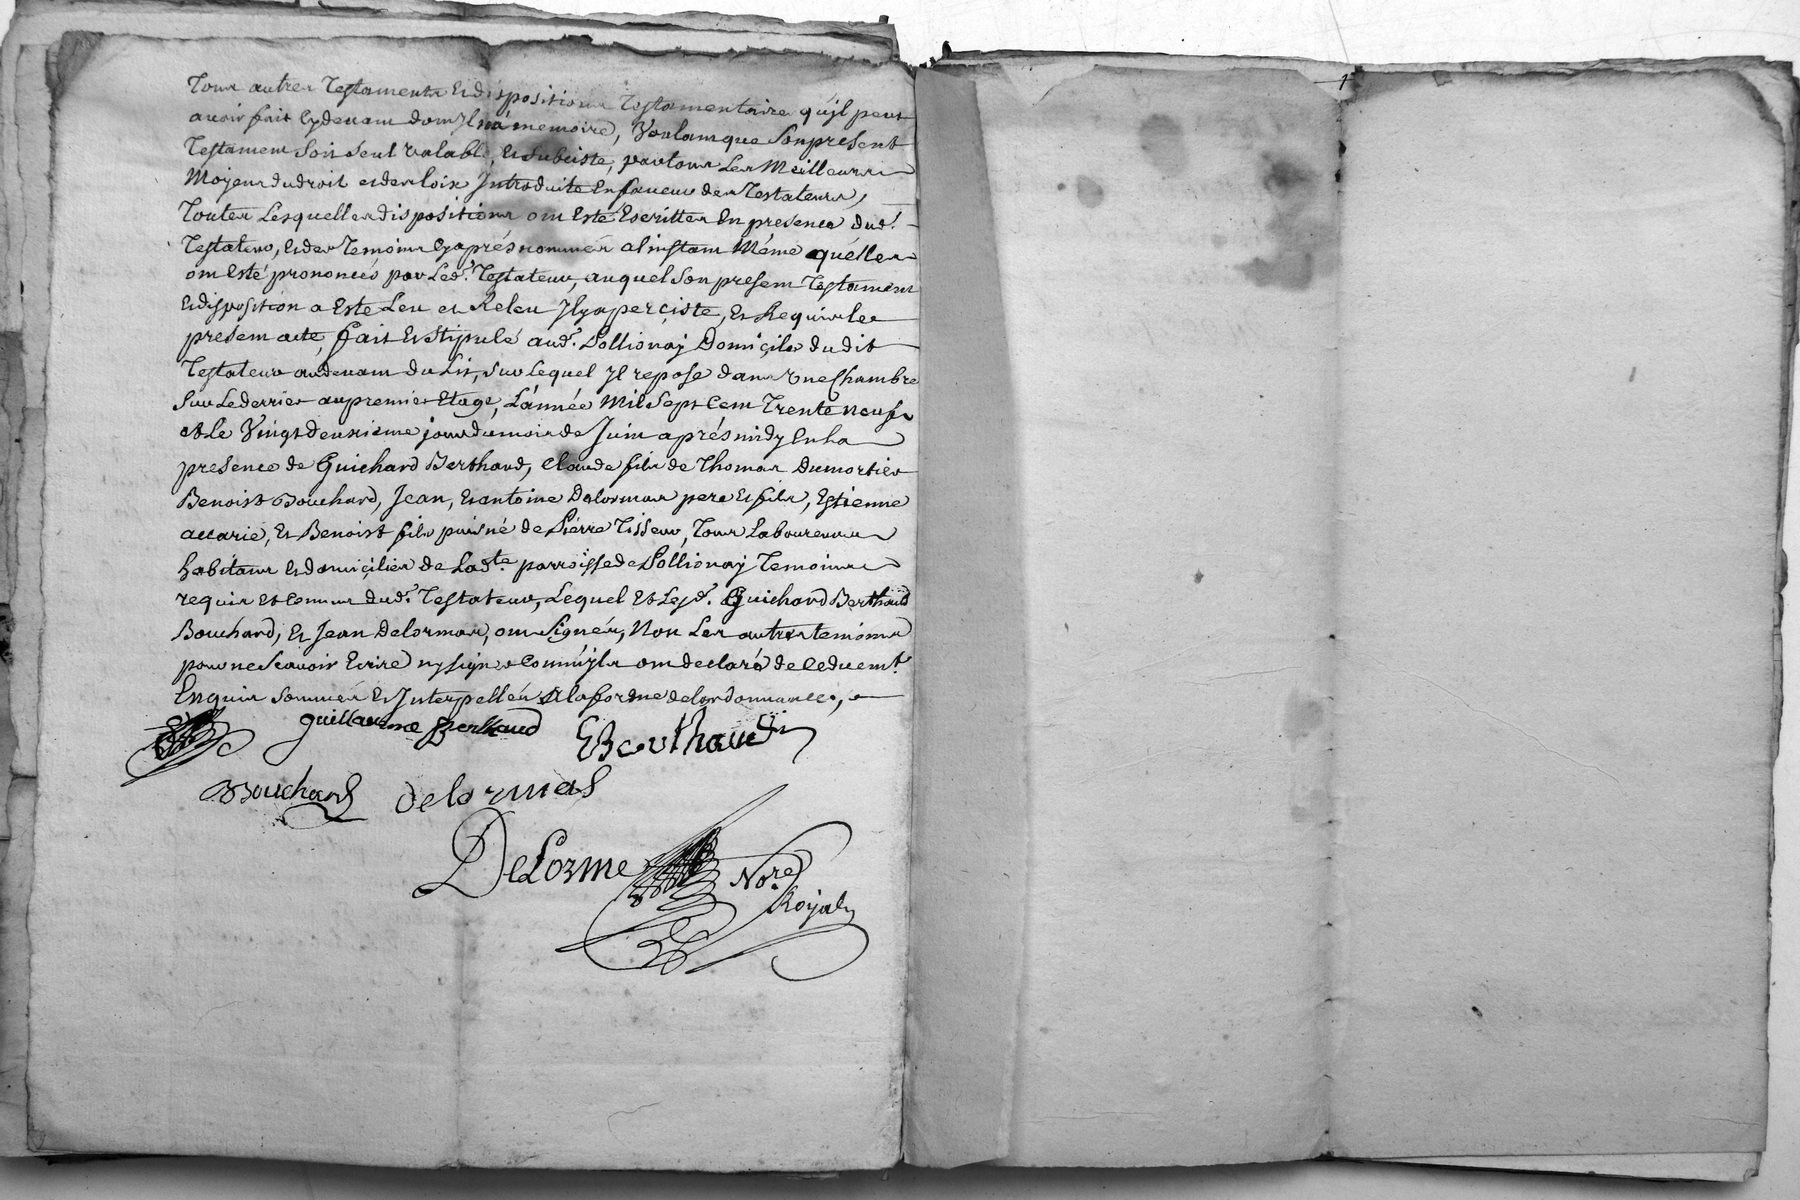 Tous autres Testaments Et dispositions Testamentaire qu'jl peut
avoir fait Cydevant dont Jl n'a memoire, Voulant que Son present
Testament Soit Seul valable, Et Subciste, par tous Les Meilleurs
Moyens du droit et des loix Introduite En faveur des Testateurs,
Toutes Lesquelles dispositions ont Esté Escrittes En presence dud.t
Testateur, Et des Temoins Cy aprés nommés a linstant Méme quélles
ont Esté prononcés par Led.t Testateur, auquel Son present Testament
Et disposition a Esté Leu et Releu Jl y a perciste, Et Requis le
present acte, fait Et Stipulé aud.t Pollionaÿ Domicile du dit
Testateur au devant du Lit, Sur Lequel Jl repose dans Une Chambre
Sur Le derrier au premier Etage, L'année Mil Sept Cent Trente neuf
et Le Vingt deuxieme jour du mois de Juin aprés midy En la
presence de Guichard Berthaud, Claude fils de Thomas Dumortier
Benoist Bouchard, Jean, Et antoine Delormas pere Et fils, Estienne
accarie, Et Benoist fils puisné de Piérre Tisseur, Tous Laboureurs
habitans Et domiciliés de Lad.te parroisse de Pollionaÿ Temoins
requis Et Connus dud.t Testateur, Lequel Et Lesd.t Guichard Berthaud
Bouchard, Et Jean Delormas, ont Signés, Non Les autres temoins
pour ne Scavoir Ecrire ny signer Comm'jls ont declaré de ce duemt.
Enquis Sommés Et Interpellés A la forme de lordonnance,
guillaume Berthaud GBerthaud
Bouchard delormas
DeLorme No.re
Royal